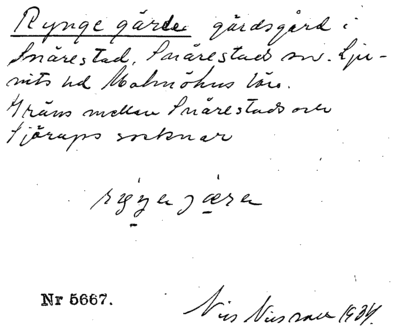 Rynge gärde gärdsgård i
Snårestad, Snårestads sn. Lju-
nits hd Malmöhus län.
Gräns mellan Snårestads och
Sjörups socknar
Nr 5667.
Nils Nilsson 1934.